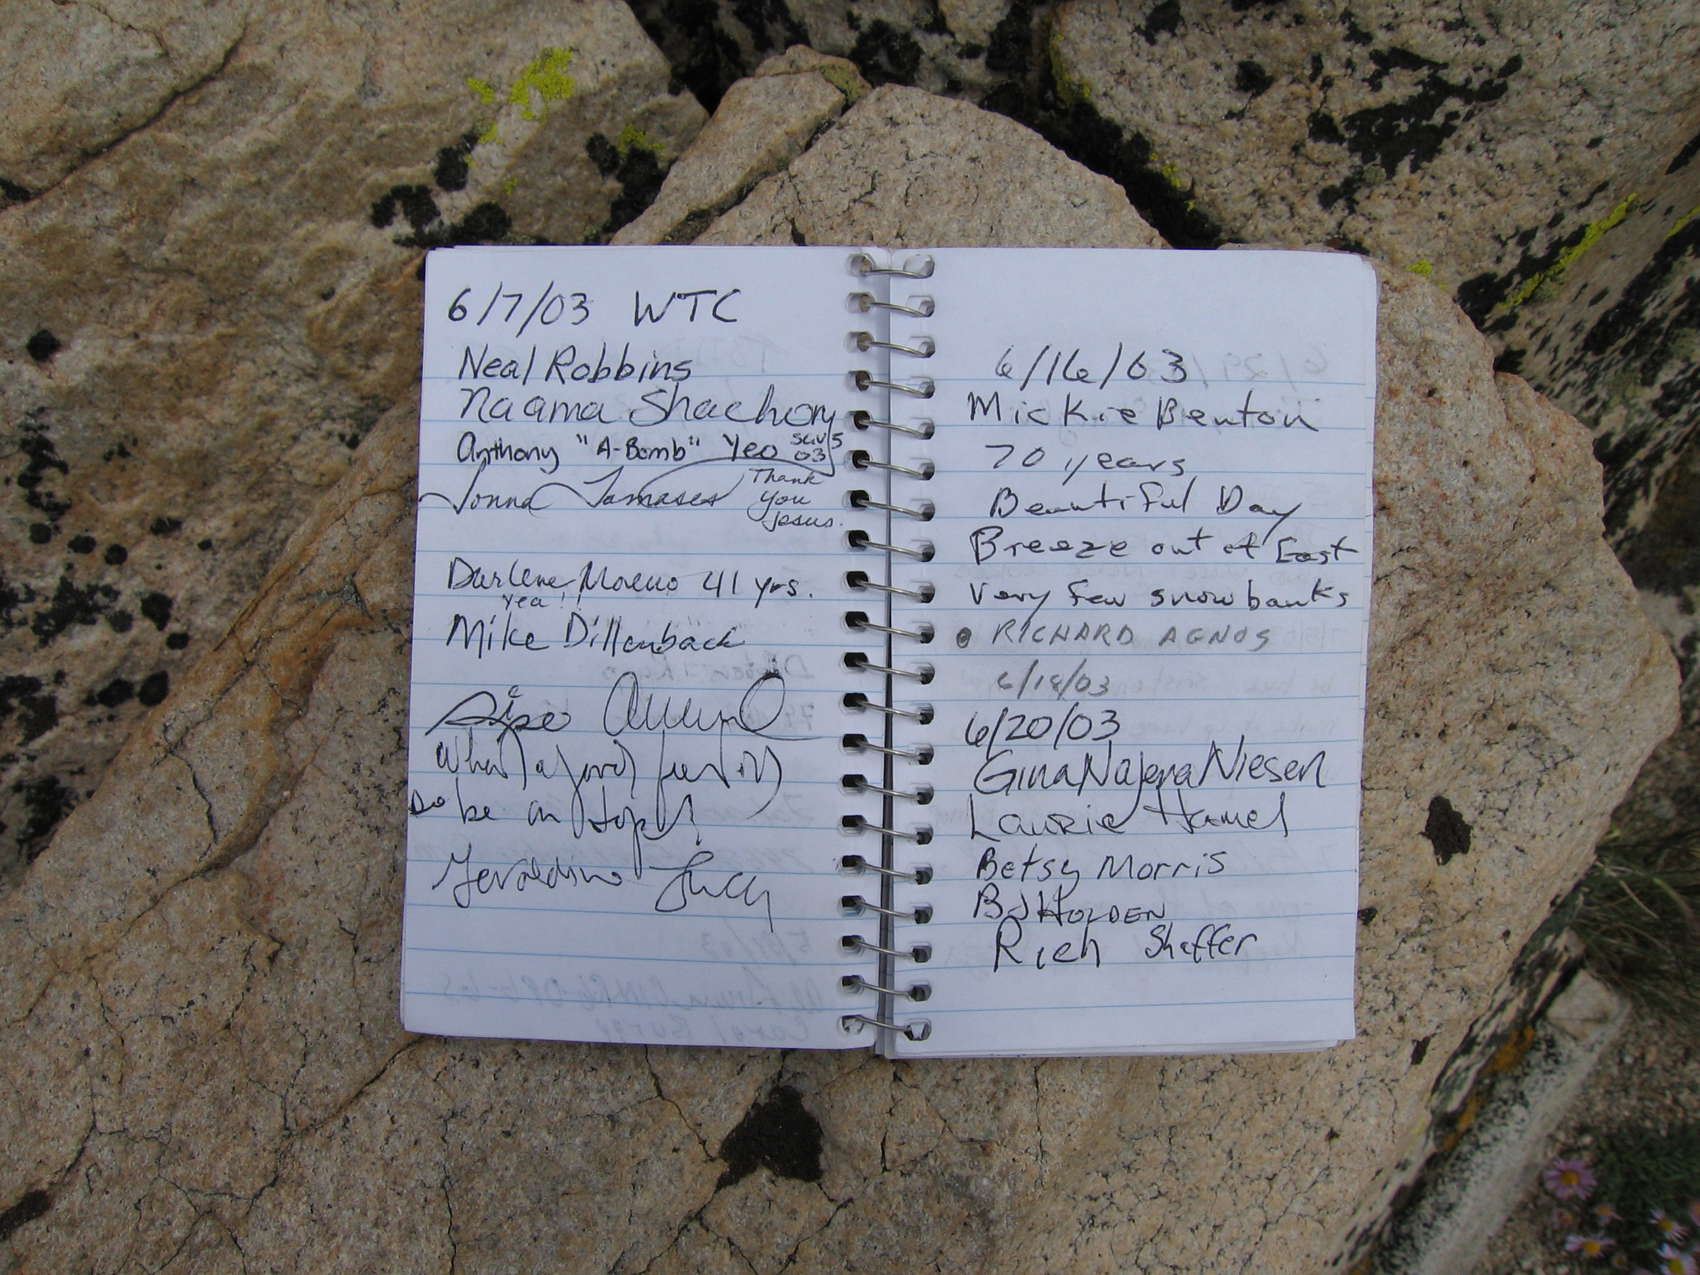 6/7/03 WTC
Neal Robbins
Naama Shachory
Anthony "A-Bomb" Yeo
03
Thank
you
Jesus.
Darlene Moreno 41 yrs.
Yea!!
Mike Dillenback
What a good feeling
to be on top!
Geraldine Lucy
6/16/03
Mickie Benton
70 years
Beautiful Day
Breeze out of East
Very few snowbanks
RICHARD AGNOS
6/18/03
6/20/03
Gina Najera Niesen
Laurie Hamel
Betsy Morris
BJ HOLDEN
Rich Shaffer